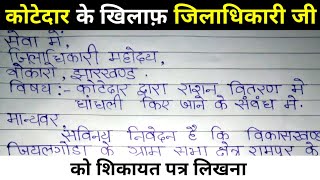 कोटेदार के खिलाफ़ जिलाधिकारी जी
सेवा में,
जिलाधिकारी महोदय,
बोकारो, झारखण्ड.
विषय:- कोटेदार द्वारा राशन वितरण में
धाँधली किए जाने के संबंध में.
मान्यवर
सविनय निवेदन है कि विकासखण्ड
के ग्राम सभा क्षेत्र रामपुर के
को शिकायत पत्र लिखना